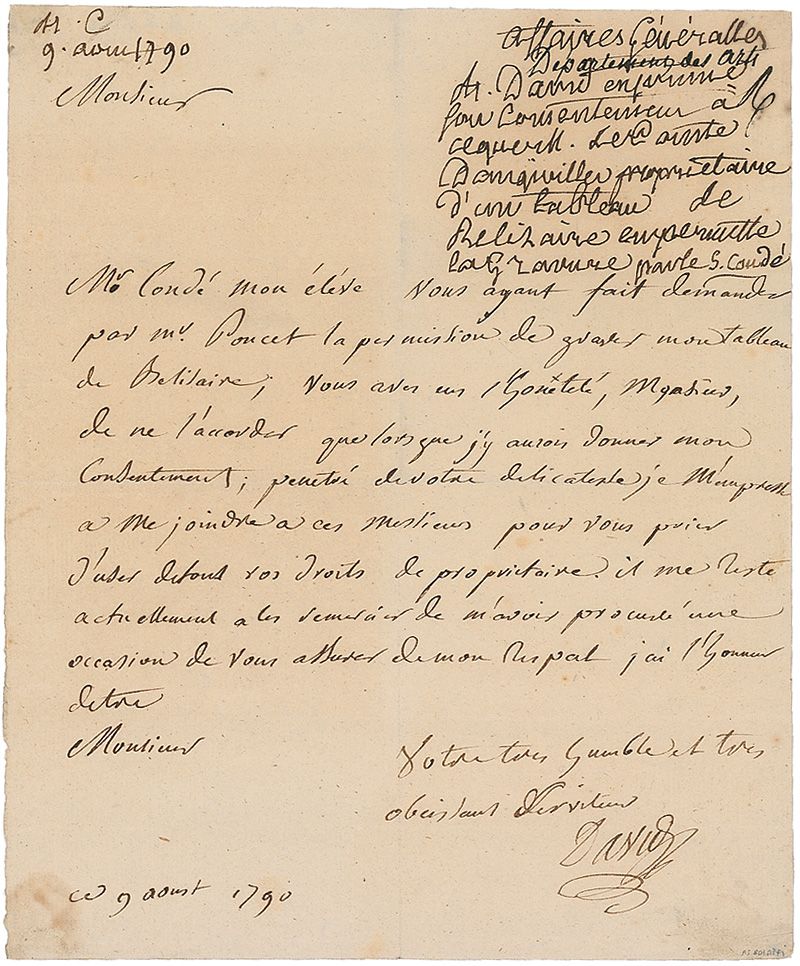 M. C
9. aoust 1790
affaires Généralles
Departement des arts
M. David exprime
son Consentement à
ce que M. Le Comte
Dangiviller proprietaire
d'un tableau de
Belisaire en permette
la Gravure par le S. Condé
Monsieur
Mr Condé mon éléve vous ayant fait demander
par mr. Poncet la permission de graver mon tableau
de Belisaire; vous aves eu l'honêteté, Monsieur,
de ne l'accorder que lorsque j'y aurois donner mon
Consentement; penetré de votre delicatesse je m'empresse
a me joindre a ces messieurs pour vous prier
d'user de tout vos droits de proprietaire. il me reste
actuellement a les remercier de m'avoir procuré une
occasion de vous assurer de mon respect jai l'honneur
detre
Monsieur
Votre tres humble et tres
obeissant serviteur
David
ce 9 aoust 1790